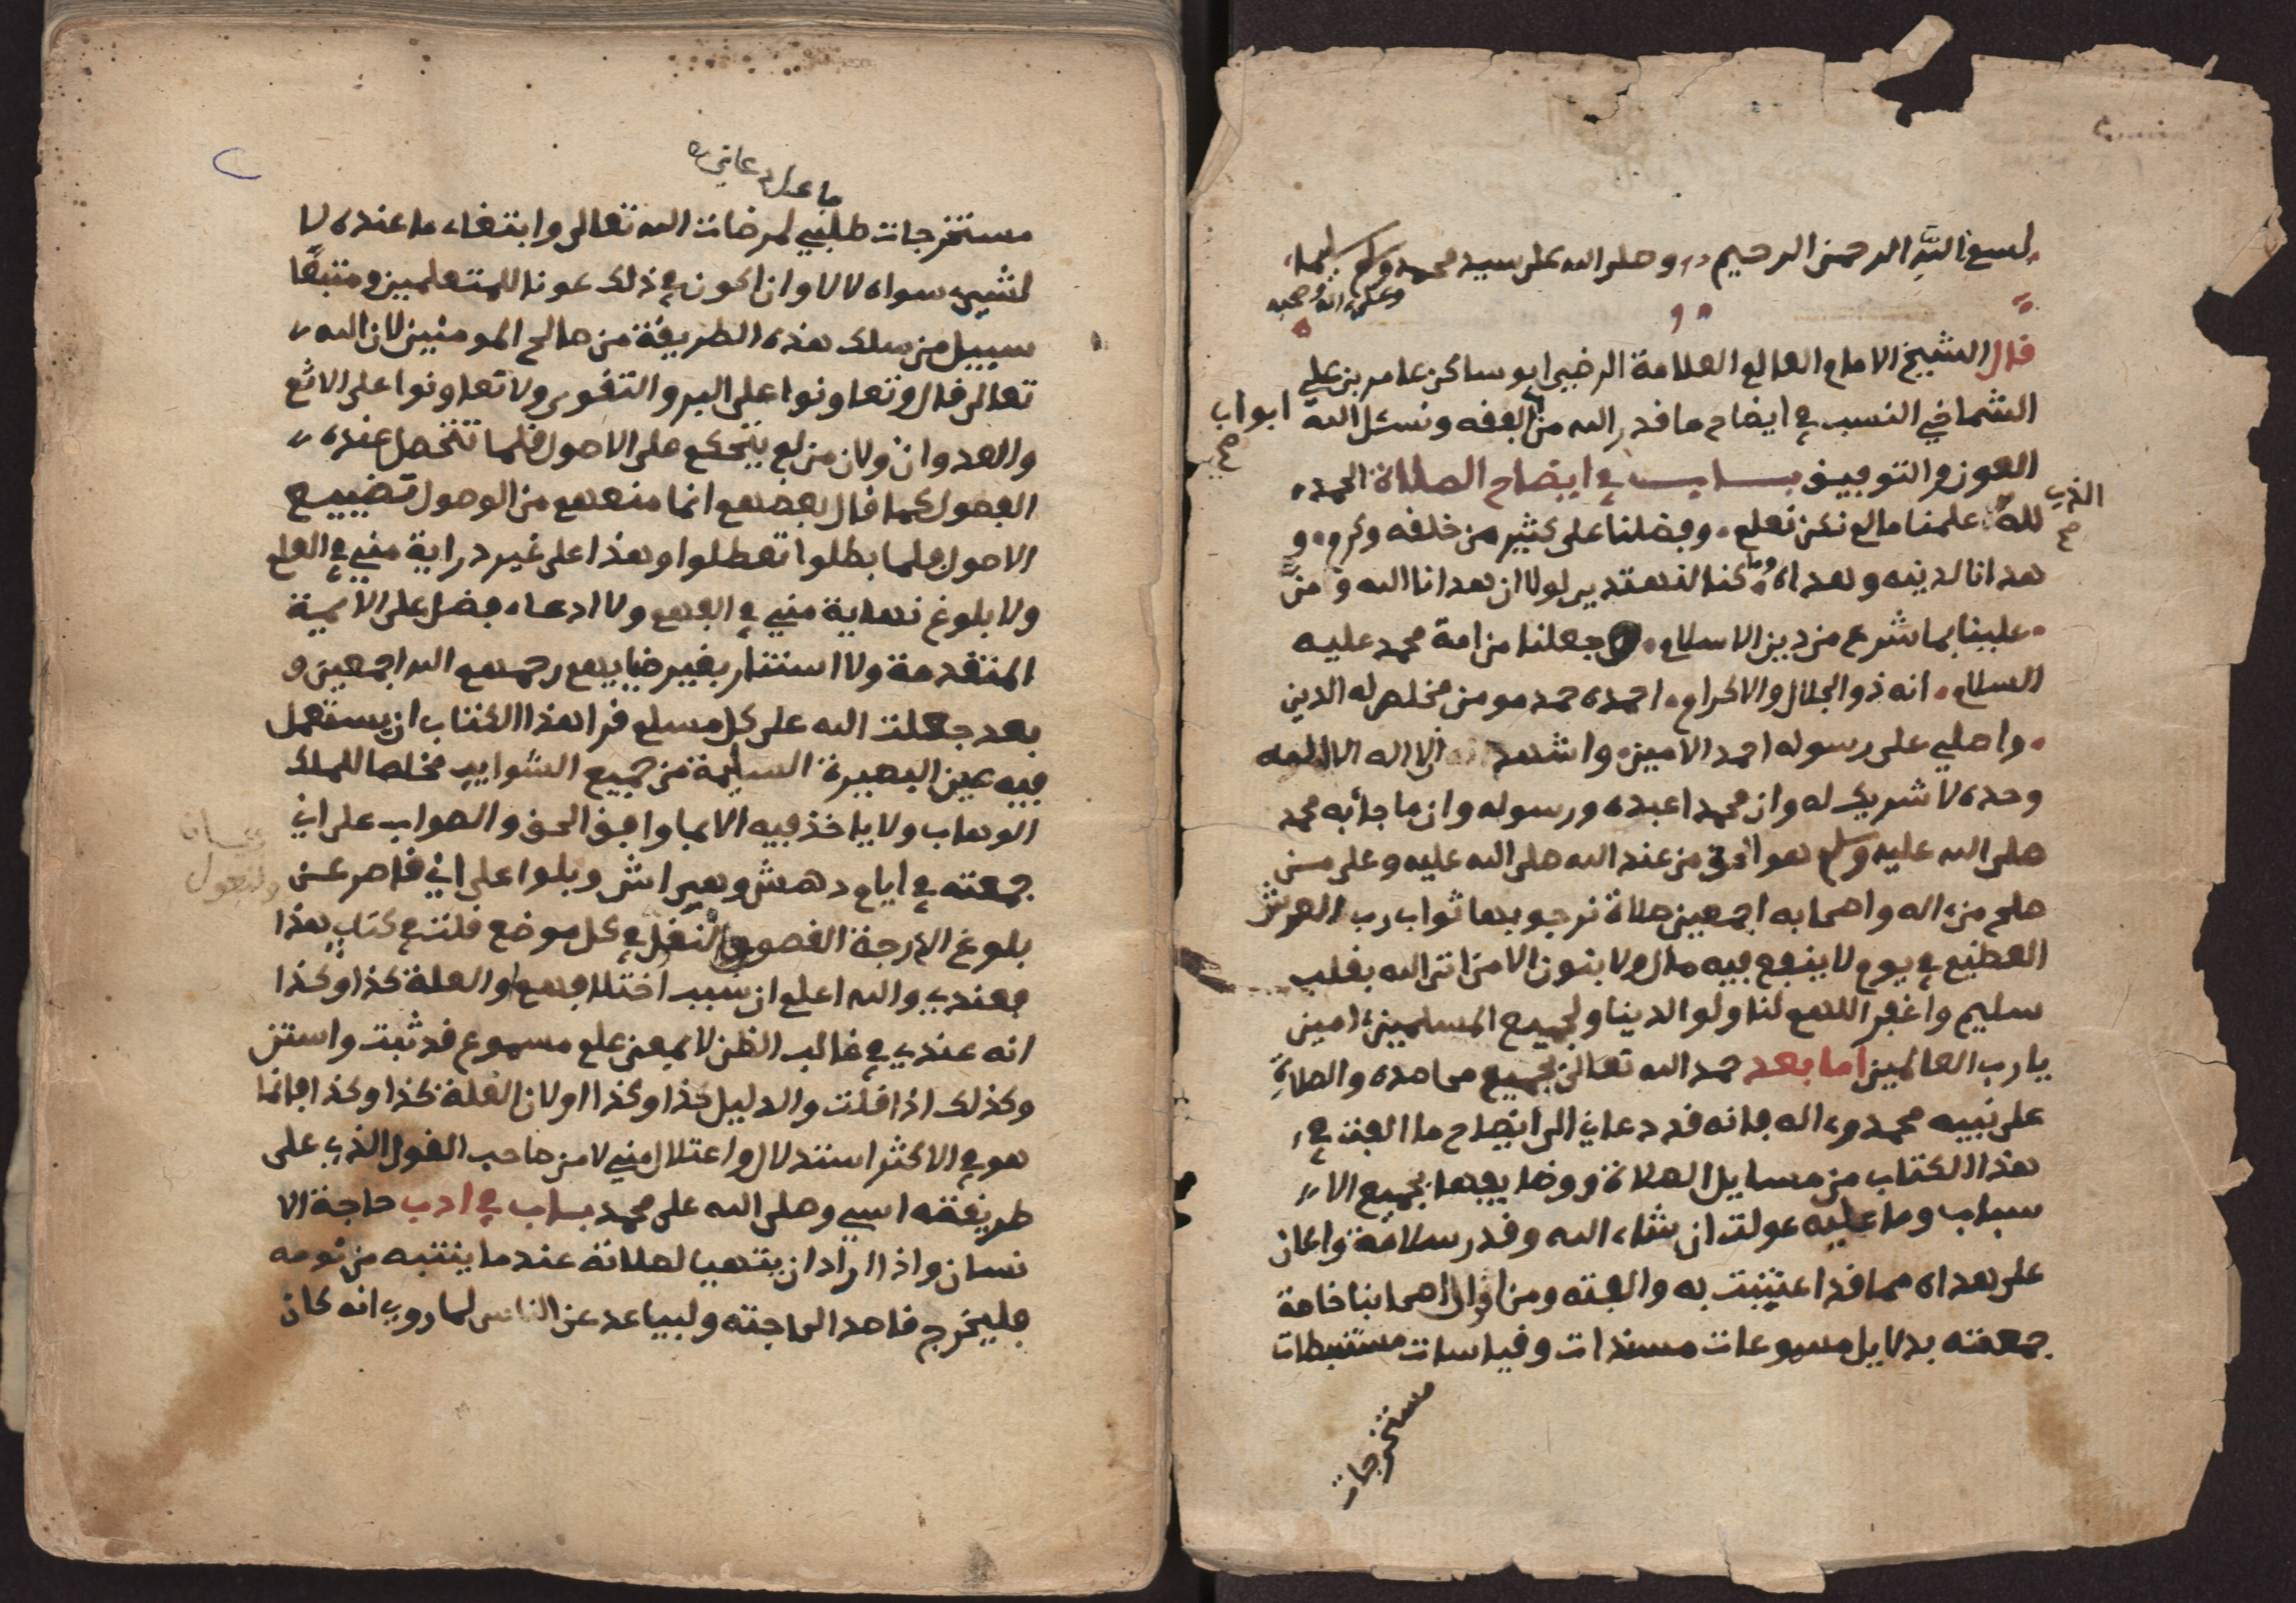 بسم الله الرحمن الرحيم وصلى الله على سيد محمد وسلم تسليما
وعلى اله وصحبه
قال الشيخ الامام العالم العلامة الرضي ابو ساكن عامر بن علي
الشماخي النسب في ايضاح ما قدر الله من ابواب الفقه ونسئل الله
العون والتوفيق باب في ايضاح الصلاة الحمد
لله الذي علمنا ما لم نكن نعلم وفضلنا على كثير من خلقه وكرم و
هدانا لدينه وهداه وما كنا لنهتدي لولا ان هدانا الله ومنّ
علينا بما شرع من دين الاسلام وجعلنا من امة محمد عليه
السلام انه ذو الجلال والاكرام احمده حمد مومن مخلص له الدين
واصلي على رسوله احمد الامين واشهد ان لا اله الا الله
وحده لا شريك له وان محمدا عبده ورسوله وان ما جاء به محمد
صلى الله عليه وسلم هو الحق من عند الله صلى الله عليه وعلى من
صلح من اله واصحابه اجمعين صلاة نرجو بها ثواب رب العرش
العظيم في يوم لا ينفع فيه مال ولا بنون الا من اتى الله بقلب
سليم واغفر اللهم لنا ولوالدينا ولجميع المسلمين امين
يا رب العالمين اما بعد حمد الله تعالى بجميع محامده والصلاة
على نبيه محمد واله فانه قد دعاني الى ايضاح ما الفت في
هذا الكتاب من مسايل الصلاة ووضايفها بجميع الا
سباب وما عليه عولت ان شاء الله وقدر سلامة واعان
على هداه مما قد اعتنيت به والفته ومن اقوال اصحابنا خاصة
جمعته بدلايل مسموعات مسندات وقياسات مستنبطات
مستخرجات
ما عدل دعاني
مستخرجات طلبي لمرضات الله تعالى وابتغاء ما عنده لا
لشيء سواه لالا وان اكون في ذلك عونا للمتعلمين ومتبعا
سبيل من سلك هذه الطريقة من صالح المومنين لان الله
تعالى قال وتعاونوا على البر والتقوى ولا تعاونوا على الاثم
والعدوان ولان من لم يتحكم على الاصول قلما تتحصل عنده
الفصول كما قال بعضهم انما منعهم من الوصول تضييع
الاصول فلما بطلوا تعطلوا وهذا على غير دراية مني في العلم
ولا بلوغ نهاية مني في الفهم ولا ادعاء فضل على الايمة
المتقدمة ولا استنار بغير ضيايهم رحمهم الله اجمعين و
بعد جعلت الله على كل مسلم قرا هذا الكتاب ان يستعمل
فيه عين البصيرة السليمة من جميع الشوايب مخلصا للملك
الوهاب ولا ياخذ فيه الا بما وافق الحق والصواب على اني
جمعته في ايام دهش وهيراش وبلوا على اني قاصر عن
بلوغ الدرجة القصوى والنقل في كل موضع قلت في كتاب هذا
فعندي والله اعلم ان سبب اختلافهم او العلة كذا وكذا
انه عندي في غالب الظن لا بمعنى علم مسموع قد ثبت واستن
وكذلك اذا قلت والدليل كذا وكذا او لان العلة كذا وكذا فانما
هو في الاكثر استدلال واعتلال مني لا من صاحب القول الذي على
طريقته اسي وصلى الله على محمد باب في ادب حاجة الا
نسان واذا اراد ان يتهيا لصلاته عندما ينتبه من نومه
فليخرج قاصدا لحاجته وليباعد عن الناس لما روي انه كان